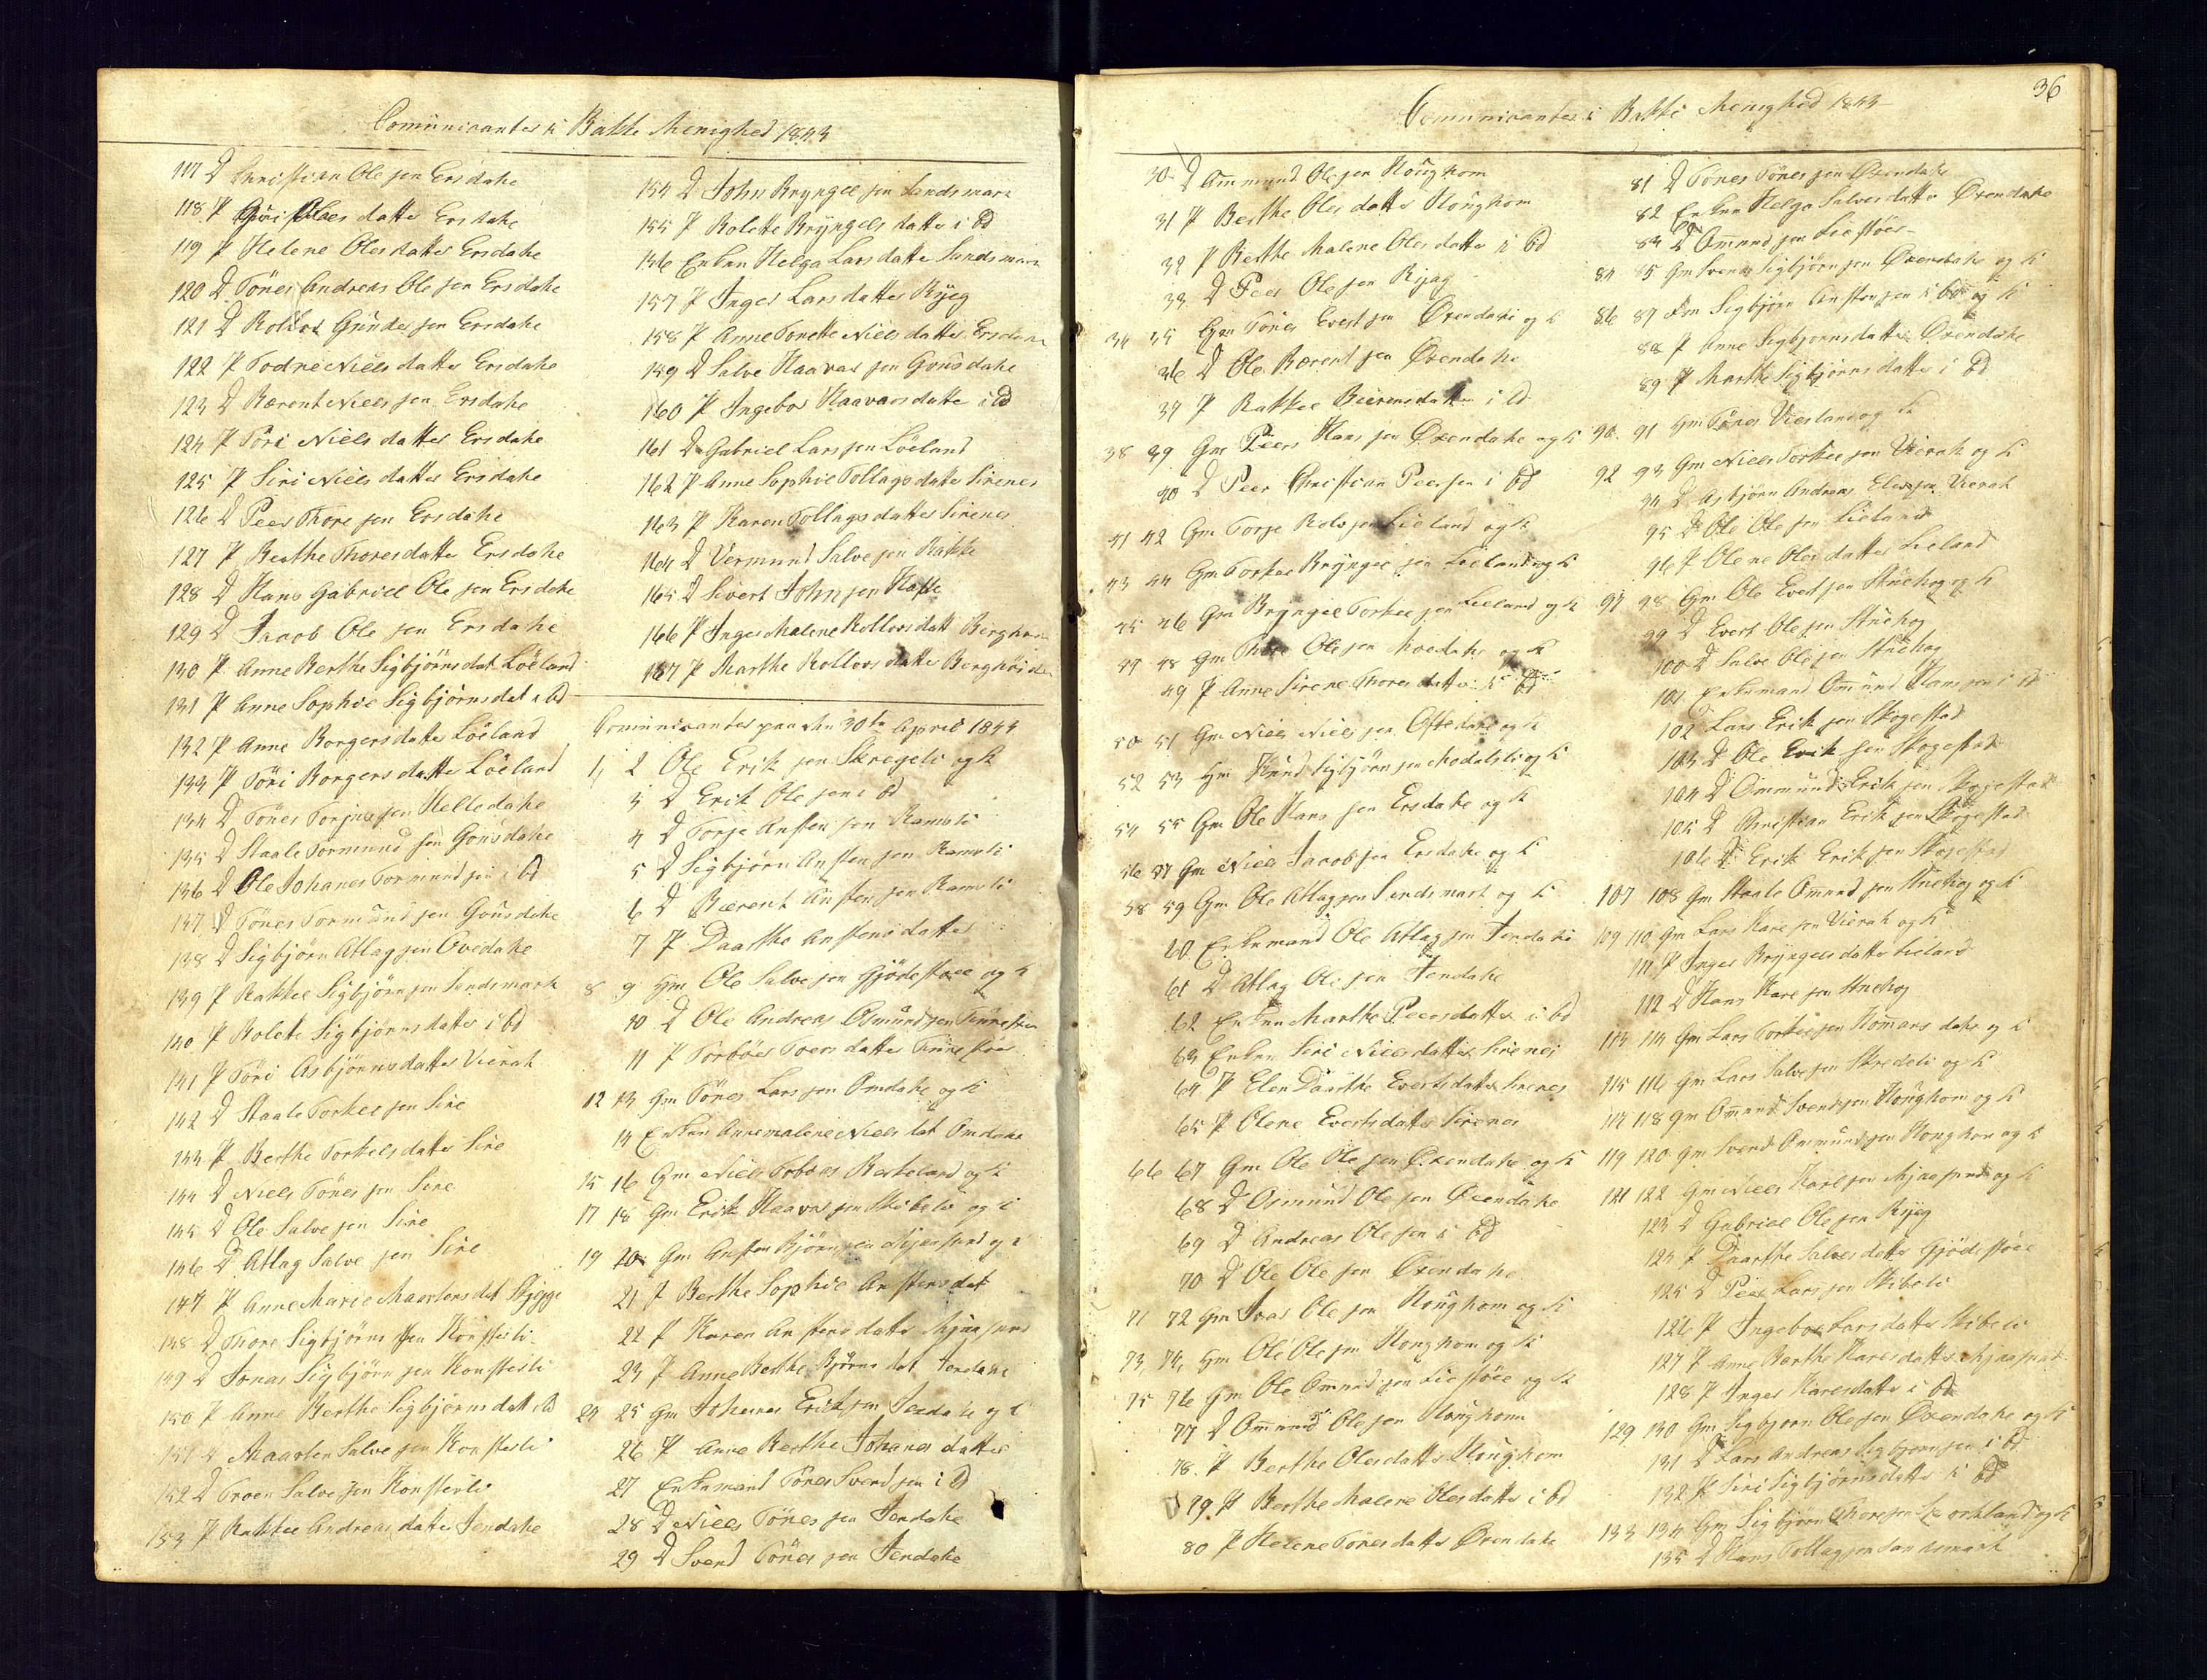 Comunicantes i Bakke Menighed 1843
117 D Christian Ole sen Ersdahe
118 P Guri Oles datter Ersdahe
119 P Helene Olesdatter Ersdahe
120 D Tönes Andreas Ole sen Ersdahe
121 D Rollov Gunder sen Ersdahe
122 P Todne Niels datter Ersdahe
123 D Bærent Niels sen Ersdahe
124 P Töri Niels datter Ersdahe
125 P Siri Niels datter Ersdahe
126 D Peer Thore sen Ersdahe
127 P Berthe Thoresdatter Ersdahe
128 D Hans Gabriel Ole sen Ersdahe
129 D Jacob Ole sen Ersdahe
130 P Anne Berthe Sigbjörnsdat Löeland
131 P Anne Sophie Sigbjörnsdat i bd
132 P Anne Borgersdatter Löeland
133 P Töri Borgersdatter Löeland
134 D Tönes Torjus sen Helledahe
135 D Staale Tormund sen Gousdahe
136 D Ole Johanes Tormund sen i bd
137 D Tönes Tormund sen Gousdahe
138 D Sigbjörn Atlag sen Ovedahe
139 P Rakkel Sigbjörn sen Sandsmark
140 P Bolete Sigbjörnsdatter i bd
141 P Töri Asbjörnsdatter Vierak
142 D Staale Torkel sen Sire
143 P Berthe Torkelsdatter Sire
144 D Niels Tönes sen Sire
145 D Ole Salve sen Sire
146 D Atlag Salve sen Sire
147 P Anne Marie Maartensdat Skjegge
148 D Thore Sigbjörns sen Konsteili
149 D Jonas Sigbjörn sen Konsteili
150 P Anne Berthe Sigbjörnsdatt i bd
151 D Maarten Salve sen Konsteili
152 D Troen Salve sen Konsteili
153 P Rakkel Andreas datter Jendahe
154 D John Bryngel sen Sandsmark
155 P Bolette Bryngels datter i bd
156 Enken Helga Lars datter Sandsmark
157 P Inger Larsdatter Ryeg
158 P Anne Tonette Niels datter Ersdahe
159 D Salve Haavar sen Gousdahe
160 P Ingebor Haavarsdatte i bd
161 D Gabriel Lars sen Löeland
162 P Anne Sophie Tollagsdatter Sirenes
163 P Karen Tollagsdatter Sirenes
164 D Vermund Salve sen Bakke
165 D Sivert John sen Hafte
166 P Inger Malene Rollovsdatt Berghous
167 P Marthe Rollovsdatter Berghous
Comunicanter paa den 30te April 1843
1, 2 Ole Erik sen Skregeli og K
3 D Erik Ole sen i bd
4 D Torje Ansten sen Ramsli
5 D Sigbjörn Ansten sen Ramsli
6 D Bærent Ansten sen Ramsli
7 P Daarthe Anstensdatter
8 9 Gm Ole Salve sen Gjödestoel og K
10 D Ole Andreas Osmund sen
11 P Torbör datter
12 13 Gm Tönes Lars sen Omdahe og K
14 Enken Annemalene Niels dat Omdahe
15 16 Gm Niels Tobias Berkeland og K
17 18 Gm Erik Haavar sen Skibeli og K
19 20 Gm Ansten Björn sen og K
21 P Berthe Sophie Anstensdat
22 P Karen Anstensdatter
23 P Anne Berthe Björns dat Jendahe
24 25 Gm Johanes Erik sen Jendahe og K
26 P Anne Berthe Johanes datter
27 Enkemand Tönes Svend sen i bd
28 D Niels Tönes sen Jendahe
29 D Svend Tönes sen Jendahe
36
Comunicantes i Bakke Menighed 1843
30 D Ommund Ole sen Houghom
31 P Berthe Olesdatter Houghom
32 P Berthe Malene Olesdatter i bd
33 D Peer Ole sen Ryag
34 35 Gm Tönes Evert sen Öxendahe og K
36 D Ole Bærent sen Öxendahe
37 P Rakkel Bærensdatter i bd
38 39 Gm Peer Hans sen Öxendahe og K
40 D Peer Christian Peersen i bd
41 42 Gm Torje Rolv sen Lieland og K
43 44 Gm Torkel Bryngel sen Lieland og K
45 46 Gm Bryngel Torkel sen Lieland og K
47 48 Gm Thore Ole sen Moedahe og K
49 P Anne Sirene Thoresdatter i bd
50 51 Gm Niels Niels sen Oftedahe og K
52 53 Gm Knud Sigbjörn sen Modalsli og K
54 55 Gm Ole Hans sen Ersdahe og K
56 57 Gm Niels Jacob sen Ersdahe og K
58 59 Gm Ole Atlag sen Sandsmark og K
60 Enkemand Ole Atlag sen Jendahe
61 D Atlag Ole sen Jendahe
62 Enken Marthe Peersdatter i bd
63 Enken Siri Nielsdatter Sirenes
64 P Elen Daarthe Evertsdatter Sirenes
65 P Olene Evertsdatter Sirenes
66 67 Gm Ole Ole sen Öxendahe og K
68 D Osmund Ole sen Öxendahe
69 D Andreas Ole sen i bd
70 D Ole Ole sen Öxendahe
71 72 Gm Ivar Ole sen Houghom og K
73, 74, Gm Ole Ole sen Houghom og K
75 76 Gm Ole Omund sen Liestöel og K
77 D Ommund Ole sen Houghom
78 P Berthe Olesdatter Houghom
79 P Berthe Malene Olesdatter i bd
80 P Helene Tönesdatter Öxendahe
81 D Tönes Tönes sen Öxendahe
82 Enken Helga Salvesdatter Öxendahe
83 D Omund sen Liestöel
84 85 Gm Svend Sigbjörn sen Öxendahe og K
86 87 Gm Sigbjörn Ansten sen i bd og K
88 P Anne Sigbjörnsdatter Öxendahe
89 P Marthe Sigbjörnsdatter i bd
90 91 Gm Tönes Viesland og K
92 93 Gm Niels Torkel sen Vierak og K
94 D Asbjörn Andreas sen Vierak
95 D Ole Ole sen Lieland
96 P Olene Olesdatter Lieland
97 98 Gm Ole Evert sen Stuehog og K
99 D Evert Ole sen Stuehog
100 D Salve Ole sen Stuehog
101 Enkemand Omund Hans sen i bd
102 Lars Erik sen Skogestad
103 D Ole Erik sen Skogestad
104 D Ommund Erik sen Skogestad
105 D Christian Erik sen Skogestad
106 D Erik Erik sen Skogestad
107 108 Gm Staale Omund sen Stuehog og K
109 110 Gm Lars Kare sen Vierak og K
111 P Inger Bryngelsdatter Lieland
112 D Hans Kare sen Stuehog
113 114 Gm Lars Torkel sen Homansdahe og K
115 116 Gm Lars Salve sen Skredeli og K
117 118 Gm Omund Svend sen Houghom og K
119 120 Gm Svend Ommund sen Houghom og K
121 122 Gm Niels Karl sen og K
123 D Gabriel Ole sen Ryeg
124 P Daarthe Salvesdatter Gjödestöel
125 D Peer Lars sen Skibeli
126 P Ingebor Larsdatter Skibeli
127 P Anne Berthe Karesdatter
128 P Inger Karesdatter i bd
129 130 Gm Sigbjörn Ole sen Öxendahe og K
131 D Lars Andreas Sigbjörn sen i bd
132 P Siri Sigbjörnsdatter i bd
133 134 Gm Sigbjörn Thore sen og K
135 D Hans Tollag sen Sandsmark